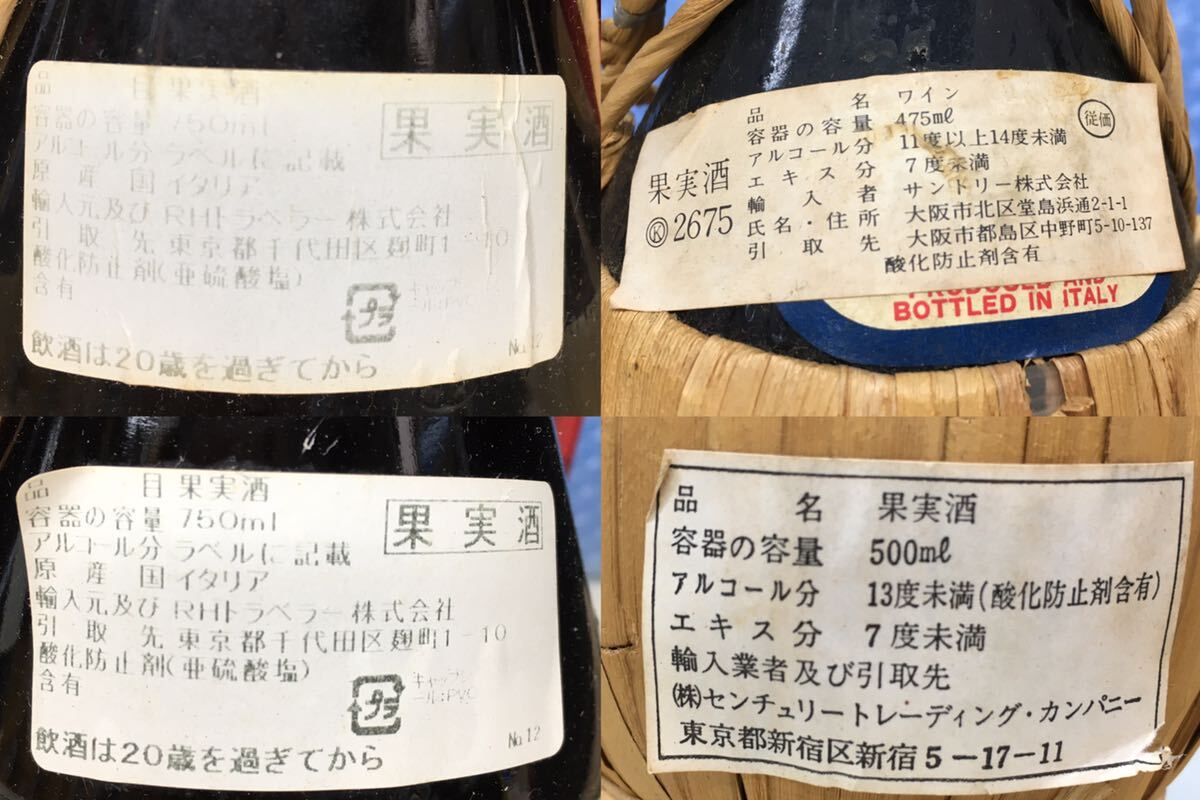 品 目 果実酒
容器の容量 750ml
果実酒
アルコール分 ラベルに記載
原産国 イタリア
輸入元及び RHトラベラー株式会社
引取先 東京都千代田区麹町1-10
酸化防止剤(亜硫酸塩)
含有
プラ
キャップ
シール:PVC
飲酒は20歳を過ぎてから
No.12
品名 ワイン
容器の容量 475ml
従価
アルコール分 11度以上14度未満
エキス分 7度未満
果実酒
Ⓚ2675
輸入者 サントリー株式会社
氏名・住所 大阪市北区堂島浜通2-1-1
引取先 大阪市都島区中野町5-10-137
酸化防止剤含有
PRODUCED AND
BOTTLED IN ITALY
品 目 果実酒
容器の容量 750ml
果実酒
アルコール分 ラベルに記載
原産国 イタリア
輸入元及び RHトラベラー株式会社
引取先 東京都千代田区麹町1-10
酸化防止剤(亜硫酸塩)
含有
プラ
キャップシ
ール:PVC
飲酒は20歳を過ぎてから
No.12
品名 果実酒
容器の容量 500ml
アルコール分 13度未満(酸化防止剤含有)
エキス分 7度未満
輸入業者及び引取先
(株)センチュリートレーディング・カンパニー
東京都新宿区新宿5-17-11